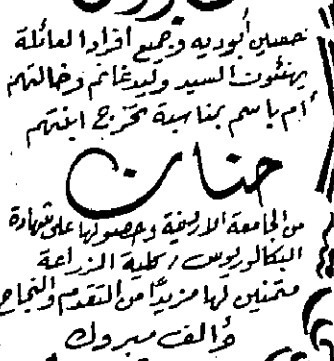 حسين أبوديه وجميع افراد العائلة
يهنئون السيد وليد غانم وخالتهم
أم باسم بمناسبة تخرج ابنتهم
حنان
من الجامعة الاردنية وحصولها على شهادة
البكالوريوس / كلية الزراعة
متمنين لها مزيداً من التقدم والنجاح
وألف مبروك